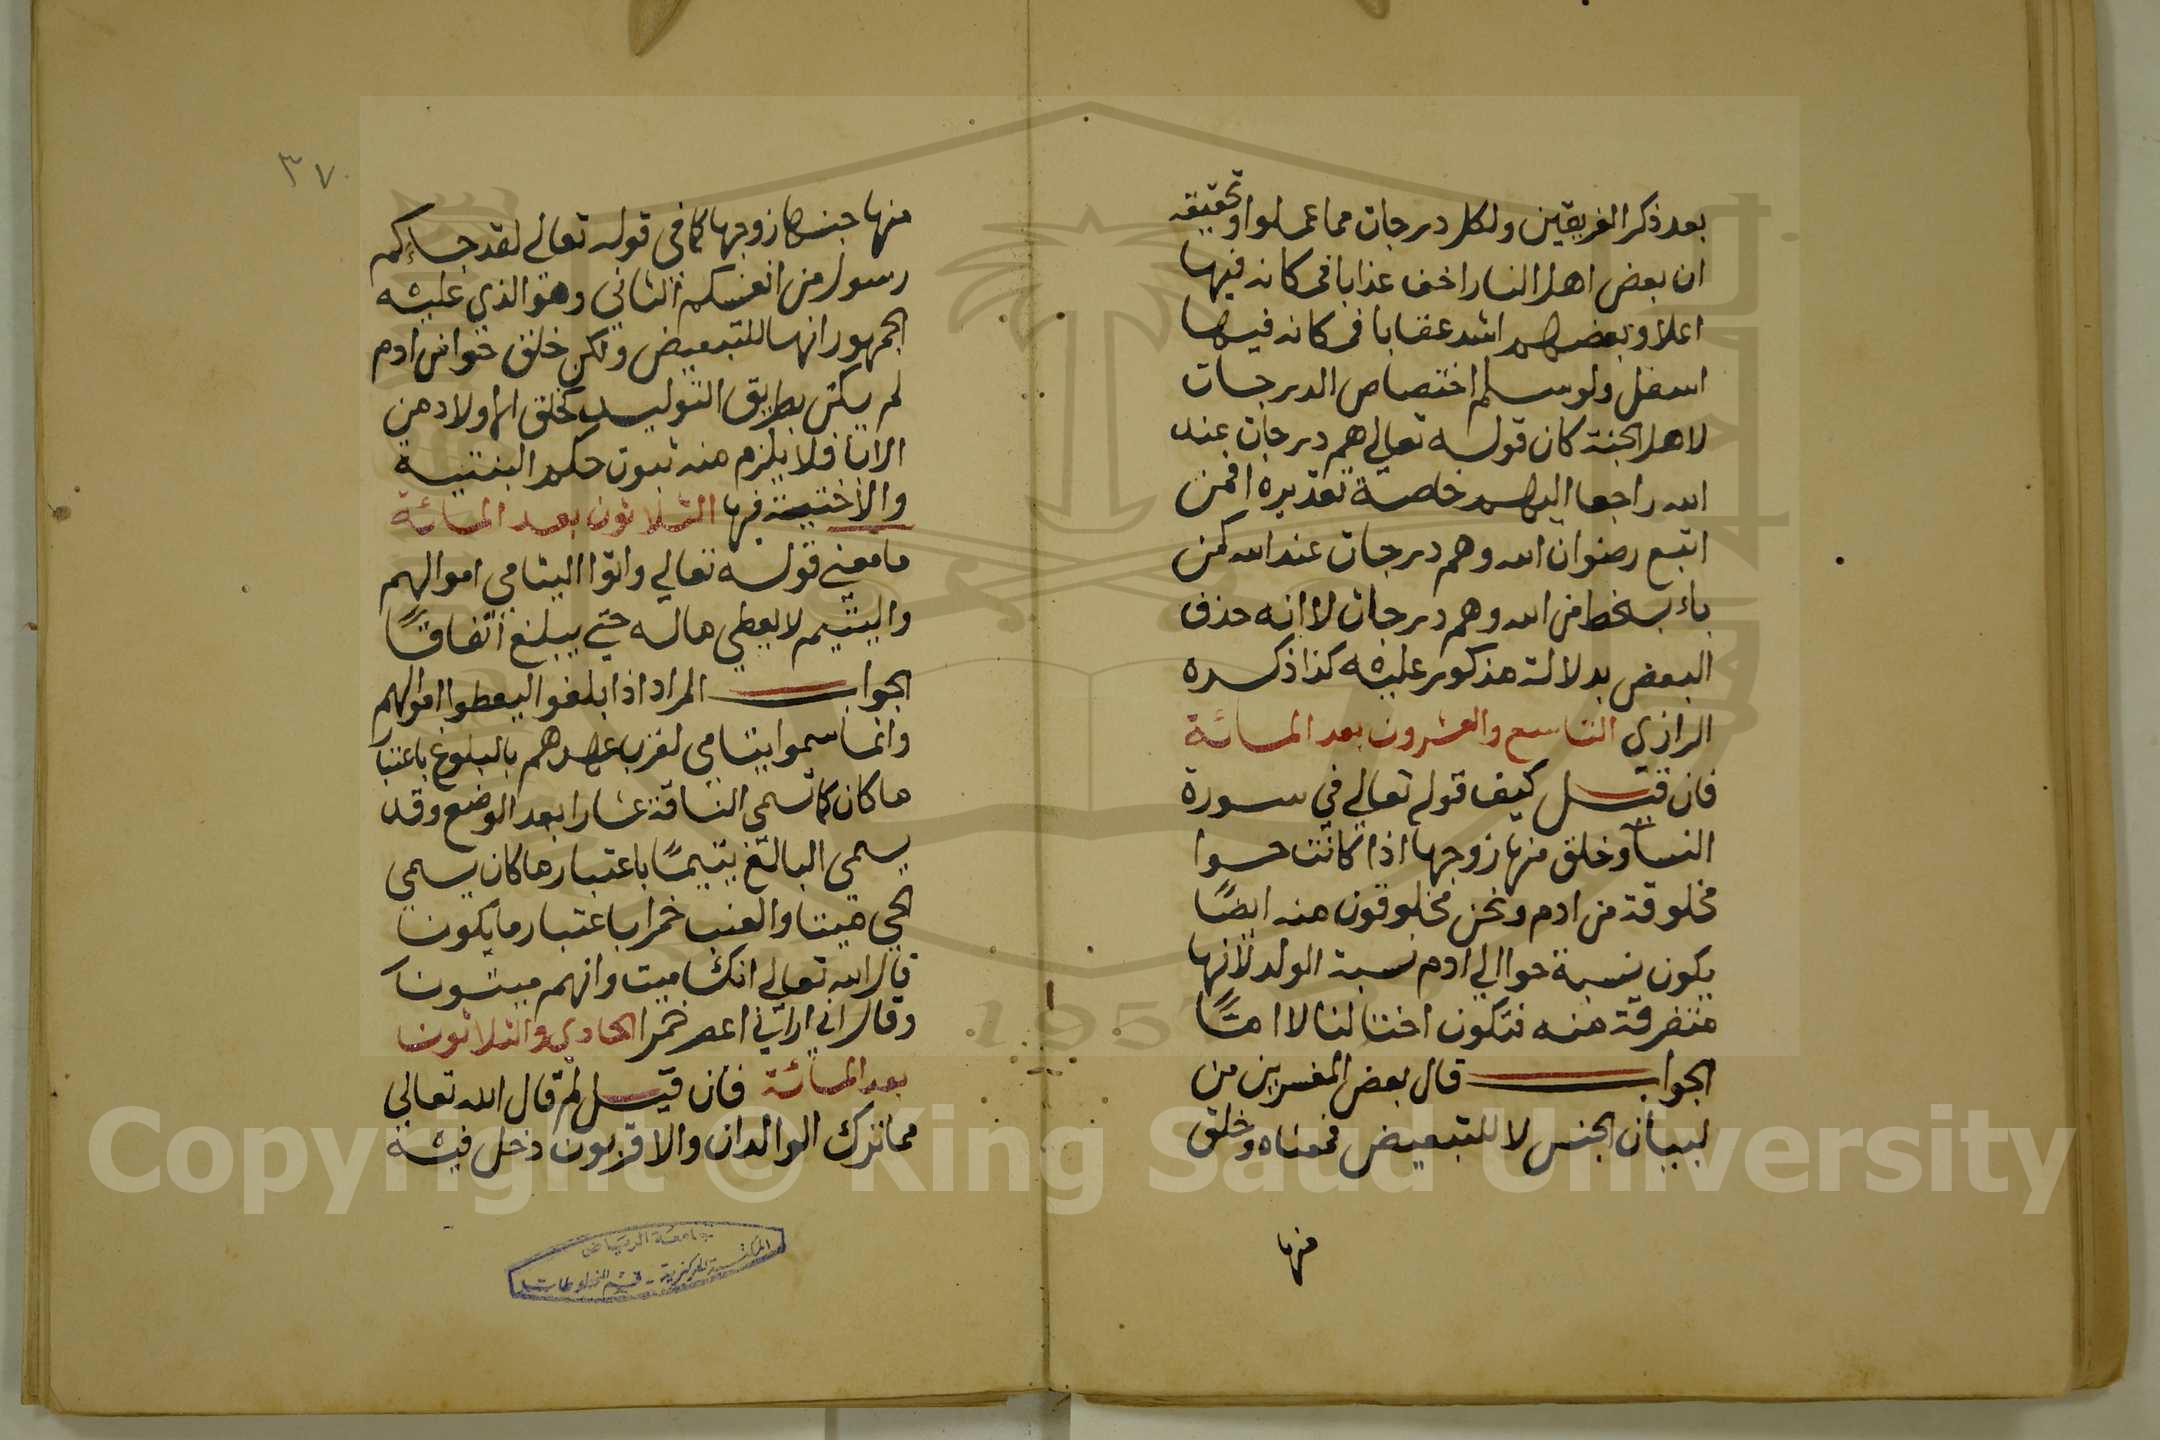 بعد ذكر الفريقين ولكل درجات مما عملوا وتحقيقه
ان بعض اهل النار اخف عذابا فمكانه فيها
اعلا وبعضهم اشد عقابا فمكانه فيها
اسفل ولو سلم اختصاص الدرجات
لاهل الجنة كان قوله تعالى هم درجات عند
الله راجعا اليهم خاصة تقديره افمن
اتبع رضوان الله وهم درجات عند الله كمن
باء بسخط من الله وهم دركات لا انه حذف
البعض بدلالة مذكور عليه كذا ذكره
الرازي التاسع والعشرون بعد المائة
فان قيل كيف قوله تعالى في سورة
النسا وخلق منها زوجها اذا كانت حوا
مخلوقة من ادم ونحن مخلوقون منه ايضًا
يكون نسبة حوا الى ادم نسبة الولد لانها
متفرقة منه فتكون اختا لنا لا امتًا
الجواب قال بعض المفسرين من
لبيان الجنس لا للتبعيض فمعناه وخلق
منها
٣٧
منها جنسها زوجها كما في قوله تعالى لقد جاءكم
رسول من انفسكم الثاني وهو الذي عليه
الجمهور انها للتبعيض ولكن خلق حوا من ادم
لم يكن بطريق التوليد كخلق الاولاد من
الابا فلا يلزم منه ثبوت حكم البنتية
والاختية فيها الثلاثون بعد المائة
ما معنى قوله تعالى واتوا اليتامى اموالهم
واليتيم لا يعطى ماله حتى يبلغ اتفاقًا
الجواب المراد اذا بلغوا اليعطوا اموالهم
وانما سموا يتامى لقرب عهدهم بالبلوغ باعتبار
ما كان كما تسمى الناقة عشارا بعد الوضع وقد
يسمى البالغ يتيمًا باعتبار ما كان يسمى
الحي ميتا والعنب خمرا باعتبار ما يكون
قال الله تعالى انك ميت وانهم ميتون
وقال اني اراني اعصر خمرا الحادي والثلاثون
بعد المائة فان قيل لم قال الله تعالى
مما ترك الوالدان والاقربون دخل فيه
جامعة الرياض
المكتبة المركزية - قسم المخطوطات
1957
Copyright © King Saud University